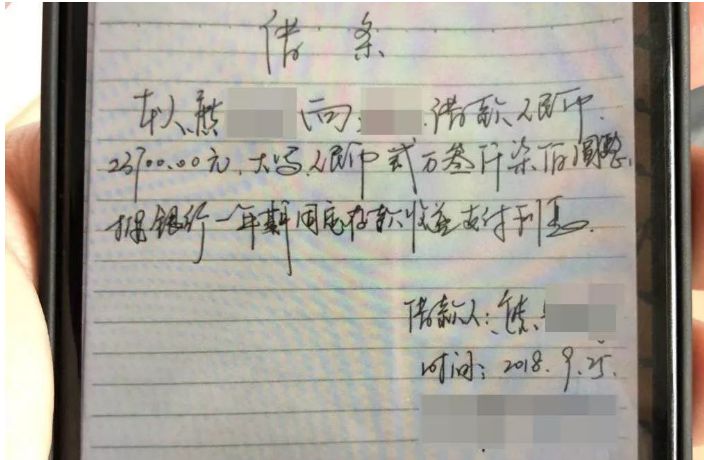 借条
本人熊 向 借款人民币
23700.00元,大写人民币贰万叁仟柒佰圆整,
按银行一年期固定存款收益支付利息.
借款人:熊
时间:2018.9.25.